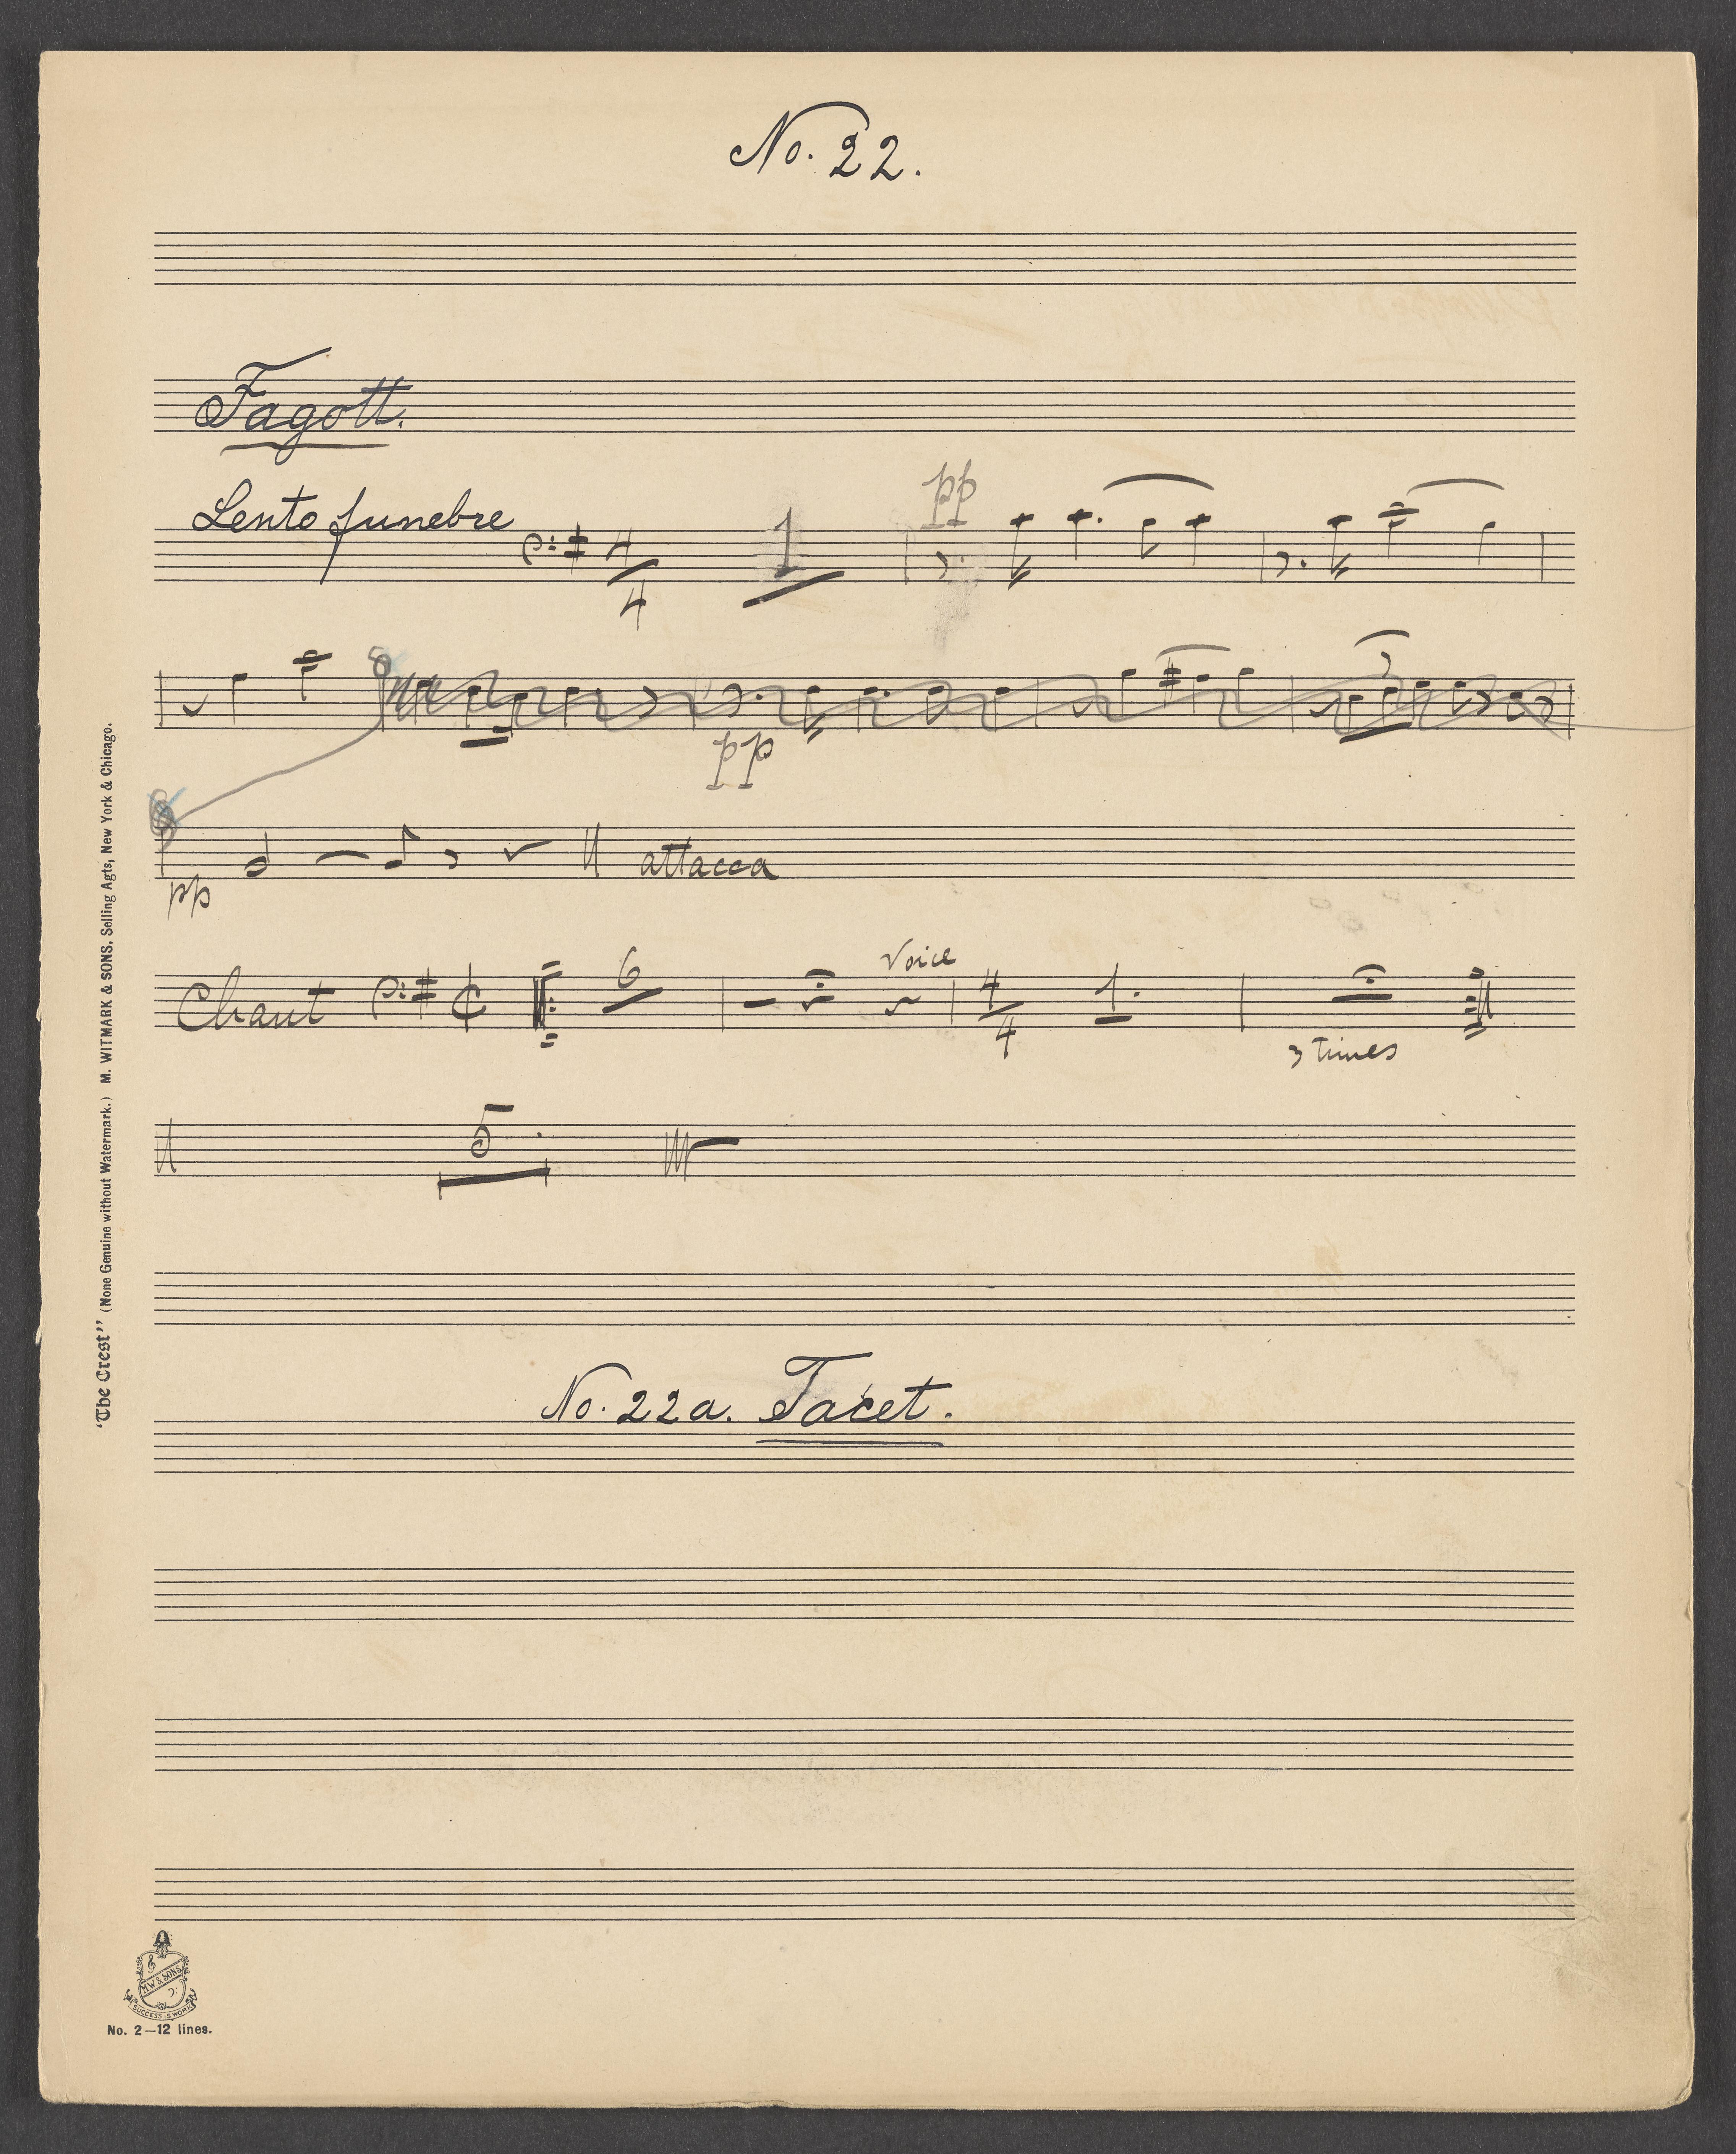 No. 22.
Fagott.
Lento funebre 4/4 1 pp
3
pp
pp attacca
Chant 6 Voice 4/4 1.
3 times
5
No. 22a. Tacet.
"The Crest" (None Genuine without Watermark.) M. WITMARK & SONS, Selling Agts, New York & Chicago.
M.W & SONS
SUCCESS IS WORK
No. 2—12 lines.